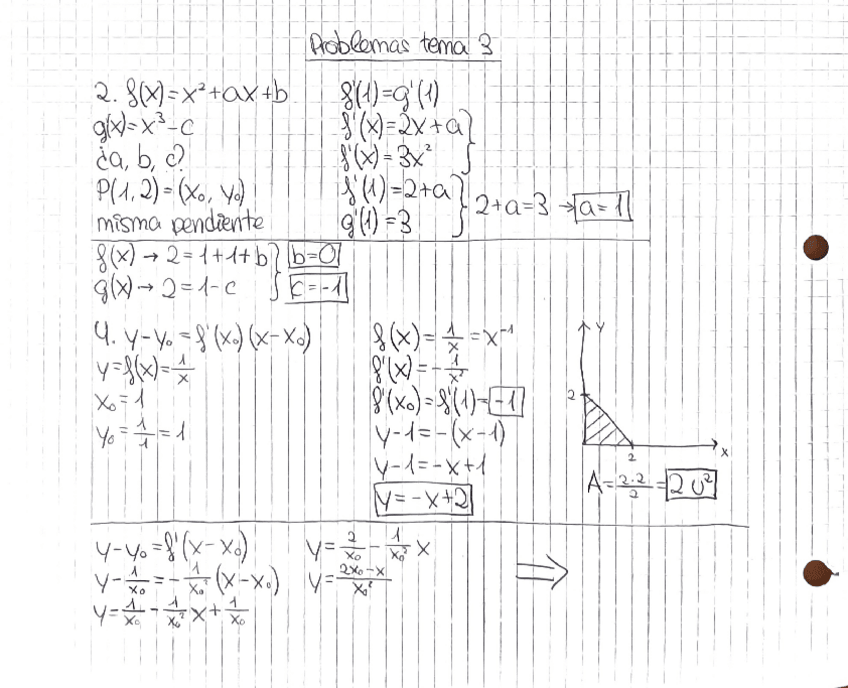 Problemas tema 3
2. f(x)=x²+ax+b
g(x)=x³-c
¿a, b, c?
P(1,2)=(x₀, y₀)
misma pendiente
f'(1)=g'(1)
f'(x)=2x+a
f'(x)=3x²
f'(1)=2+a
g'(1)=3
2+a=3 → a=1
f(x) → 2=1+1+b b=0
g(x) → 2=1-c c=-1
4. y-y₀=f'(x₀)(x-x₀)
y=f(x)=1/x
x₀=1
y₀=1/1=1
f(x)=1/x=x⁻¹
f'(x)=-1/x²
f'(x₀)=f'(1)=-1
y-1=-(x-1)
y-1=-x+1
y=-x+2
y
2
2
x
A=2·2/2=2 u²
y-y₀=f'(x-x₀)
y-1/x₀=-1/x₀²(x-x₀)
y=1/x₀-1/x₀²x+1/x₀
y=2/x₀-1/x₀²x
y=2x₀-x/x₀²
⇒